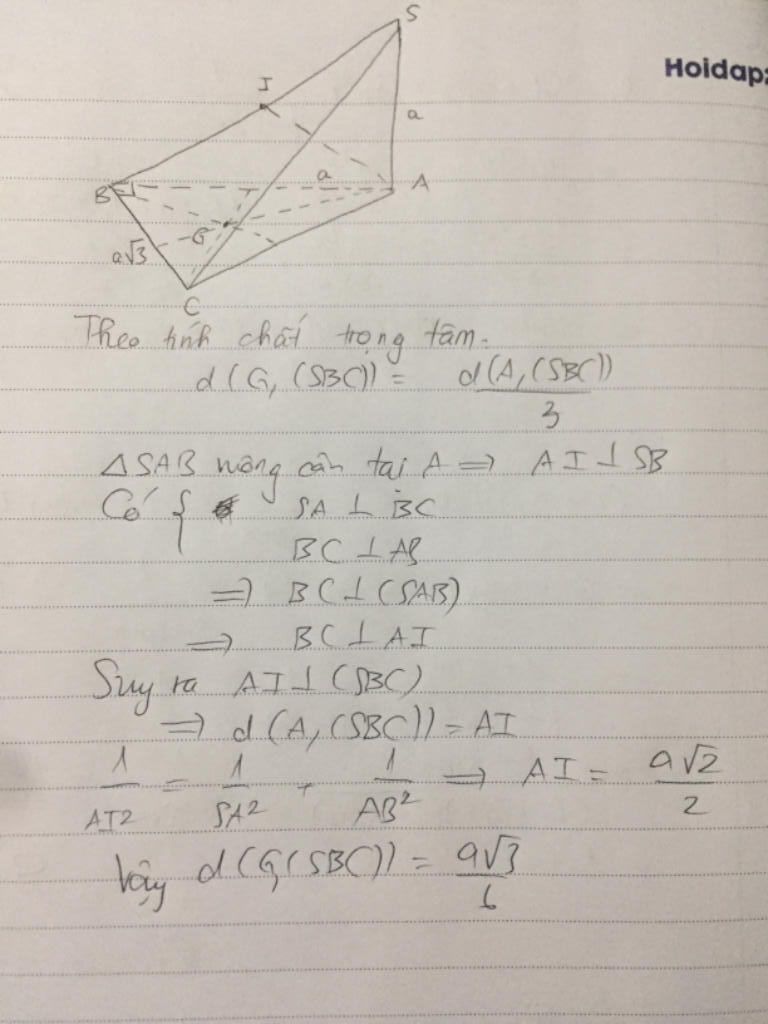 S
Hoidap
I
a
B
a
A
G
a√3
C
Theo tính chất trọng tâm.
d(G, (SBC)) = d(A, (SBC)) / 3
△SAB vuông cân tại A ⇒ AI ⊥ SB
Có { SA ⊥ BC
BC ⊥ AB
⇒ BC ⊥ (SAB)
⇒ BC ⊥ AI
Suy ra AI ⊥ (SBC)
⇒ d(A, (SBC)) = AI
1/AI² = 1/SA² + 1/AB² ⇒ AI = a√2/2
Vậy d(G,(SBC)) = a√3/6